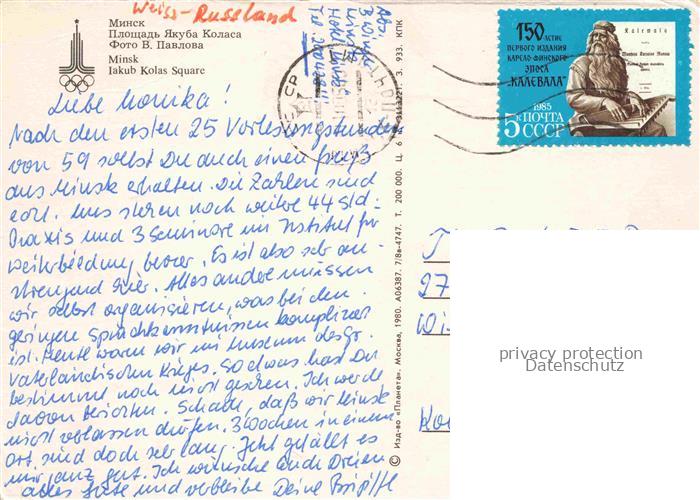 Weiss-Russland
Минск
Площадь Якуба Коласа
Фото В. Павлова
Minsk
Iakub Kolas Square
Liebe Monika!
Nach den ersten 25 Vorlesungsstunden
von 59 sollst Du auch einen Gruß
aus Minsk erhalten. Die Zahlen sind
echt. Uns stehen noch weitere 44 Std.
Praxis und 3 Seminare im Institut für
Weiterbildung bevor. Es ist also sehr an-
strengend hier. Alles andere müssen
wir selbst organisieren, was bei den
geringen Sprachkenntnissen kompliziert
ist. Heute waren wir im Museum des Gr.
Vaterländischen Krieges. So etwas hast Du
bestimmt noch nicht gesehen. Ich werde
davon berichten. Schade, daß wir Minsk
nicht verlassen dürfen. 3 Wochen in einem
Ort sind doch sehr lang. Jetzt gefällt es
mir ganz gut. Ich wünsche Euch Dreien
alles Gute und verbleibe Deine
Abs.
Minsk
Hotel
Tel.
© Изд-во «Планета». Москва, 1980. А06387. 7/8в-4747. Т. 200 000. Ц. 6 З. 933. КПК
150-ЛЕТИЕ
ПЕРВОГО ИЗДАНИЯ
КАРЕЛО-ФИНСКОГО
ЭПОСА
"КАЛЕВАЛА"
Kalewala
1985
5к ПОЧТА
СССР
27
Wi
privacy protection
Datenschutz